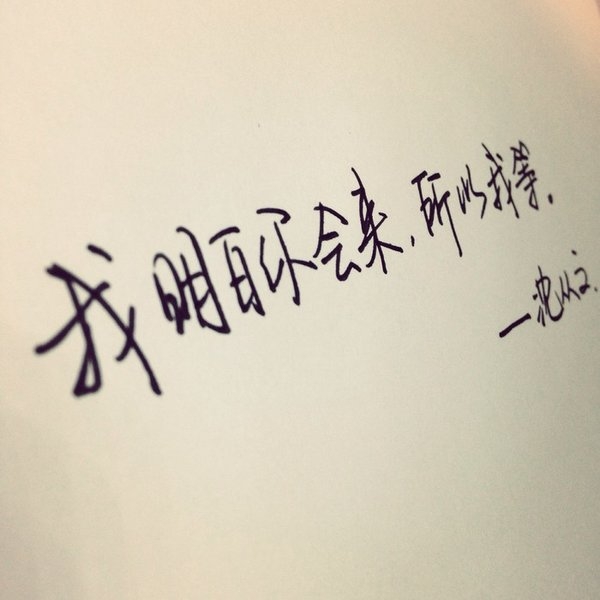 我明白你会来，所以我等。
—沈从文.